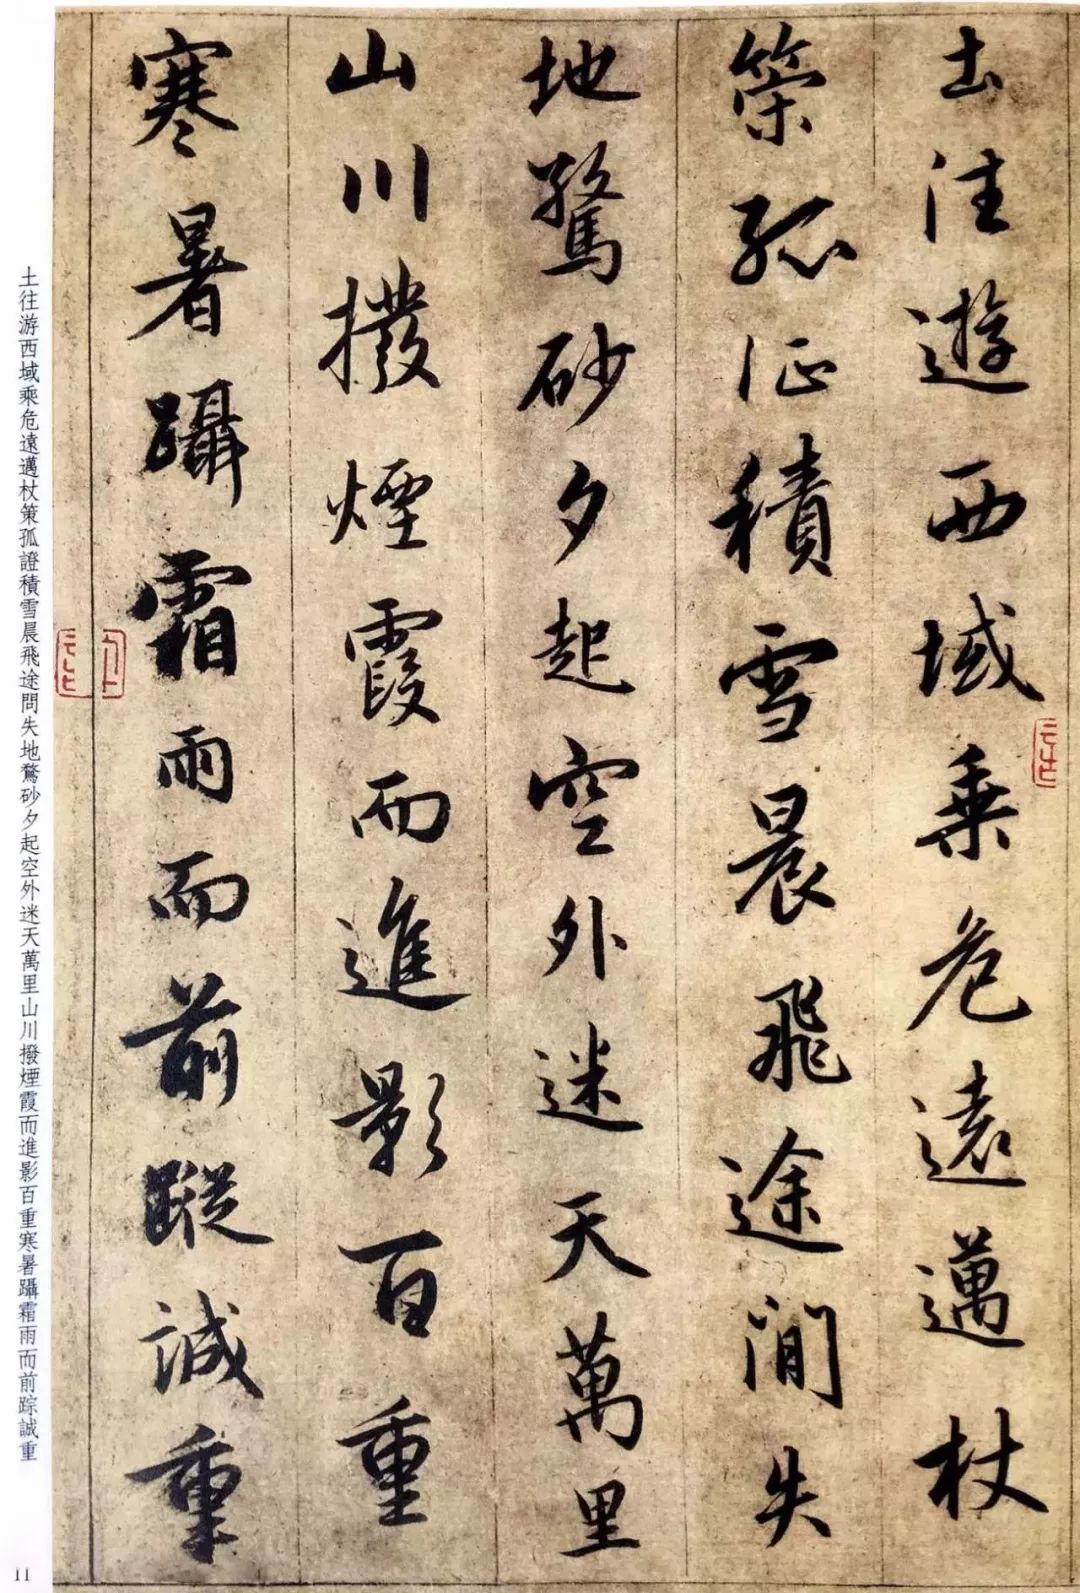 土往遊西域乘危遠邁杖
策孤征積雪晨飛途間失
地驚砂夕起空外迷天萬里
山川撥煙霞而進影百重
寒暑躡霜雨而前蹤誠重
土往游西域乘危遠邁杖策孤證積雪晨飛途問失地鶩砂夕起空外迷天萬里山川撥煙霞而進影百重寒暑躡霜雨而前踪誠重
11